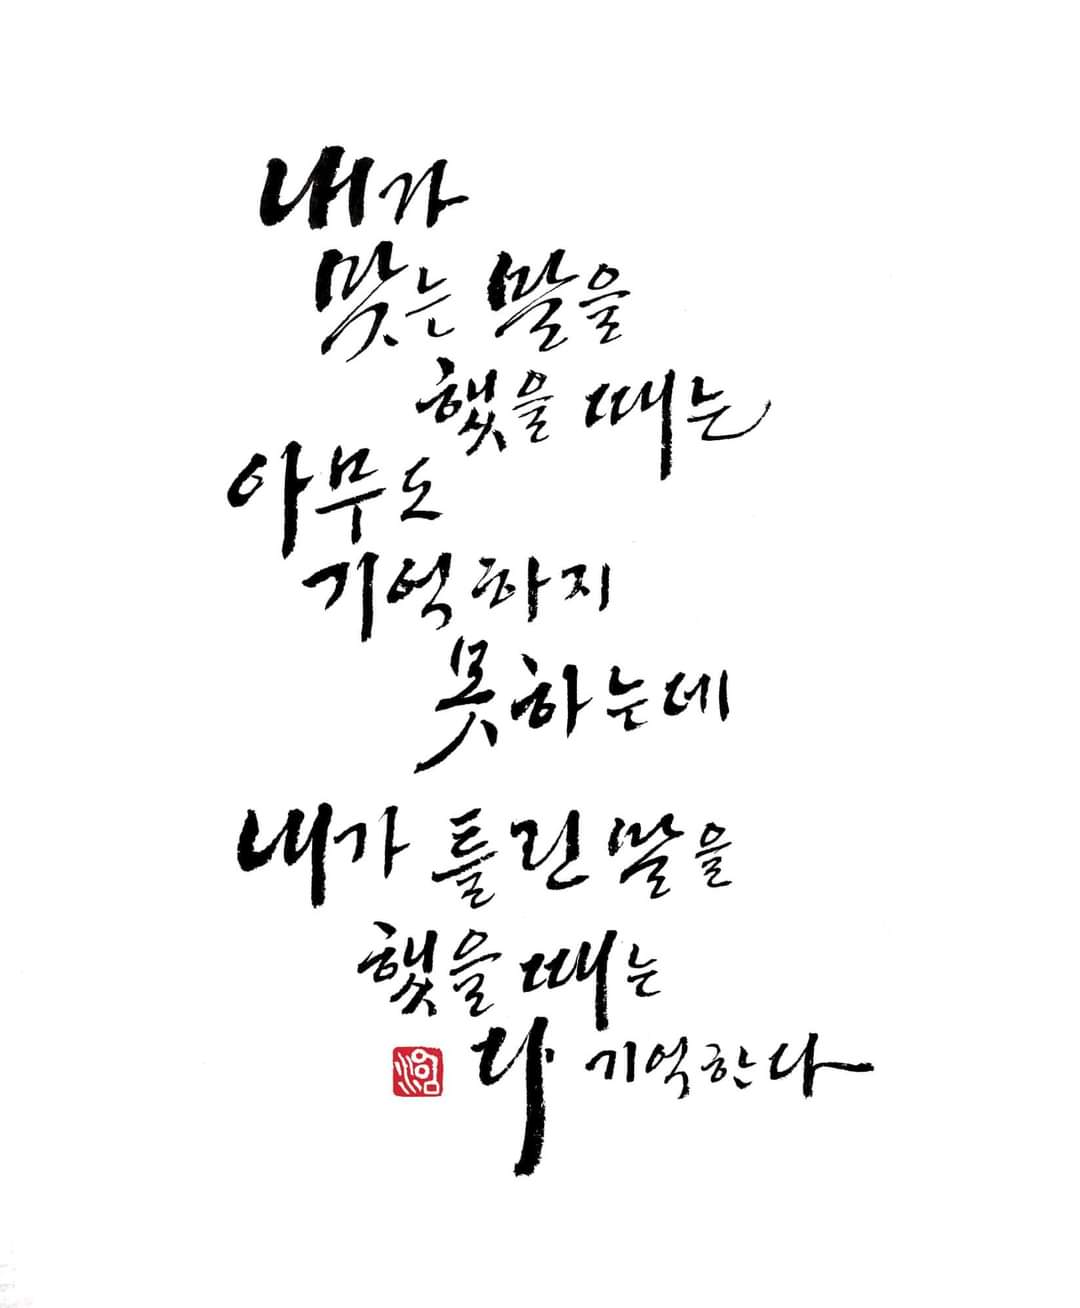 내가
맞는 말을
했을 때는
아무도
기억하지
못하는데
내가 틀린 말을
했을 때는
다 기억한다